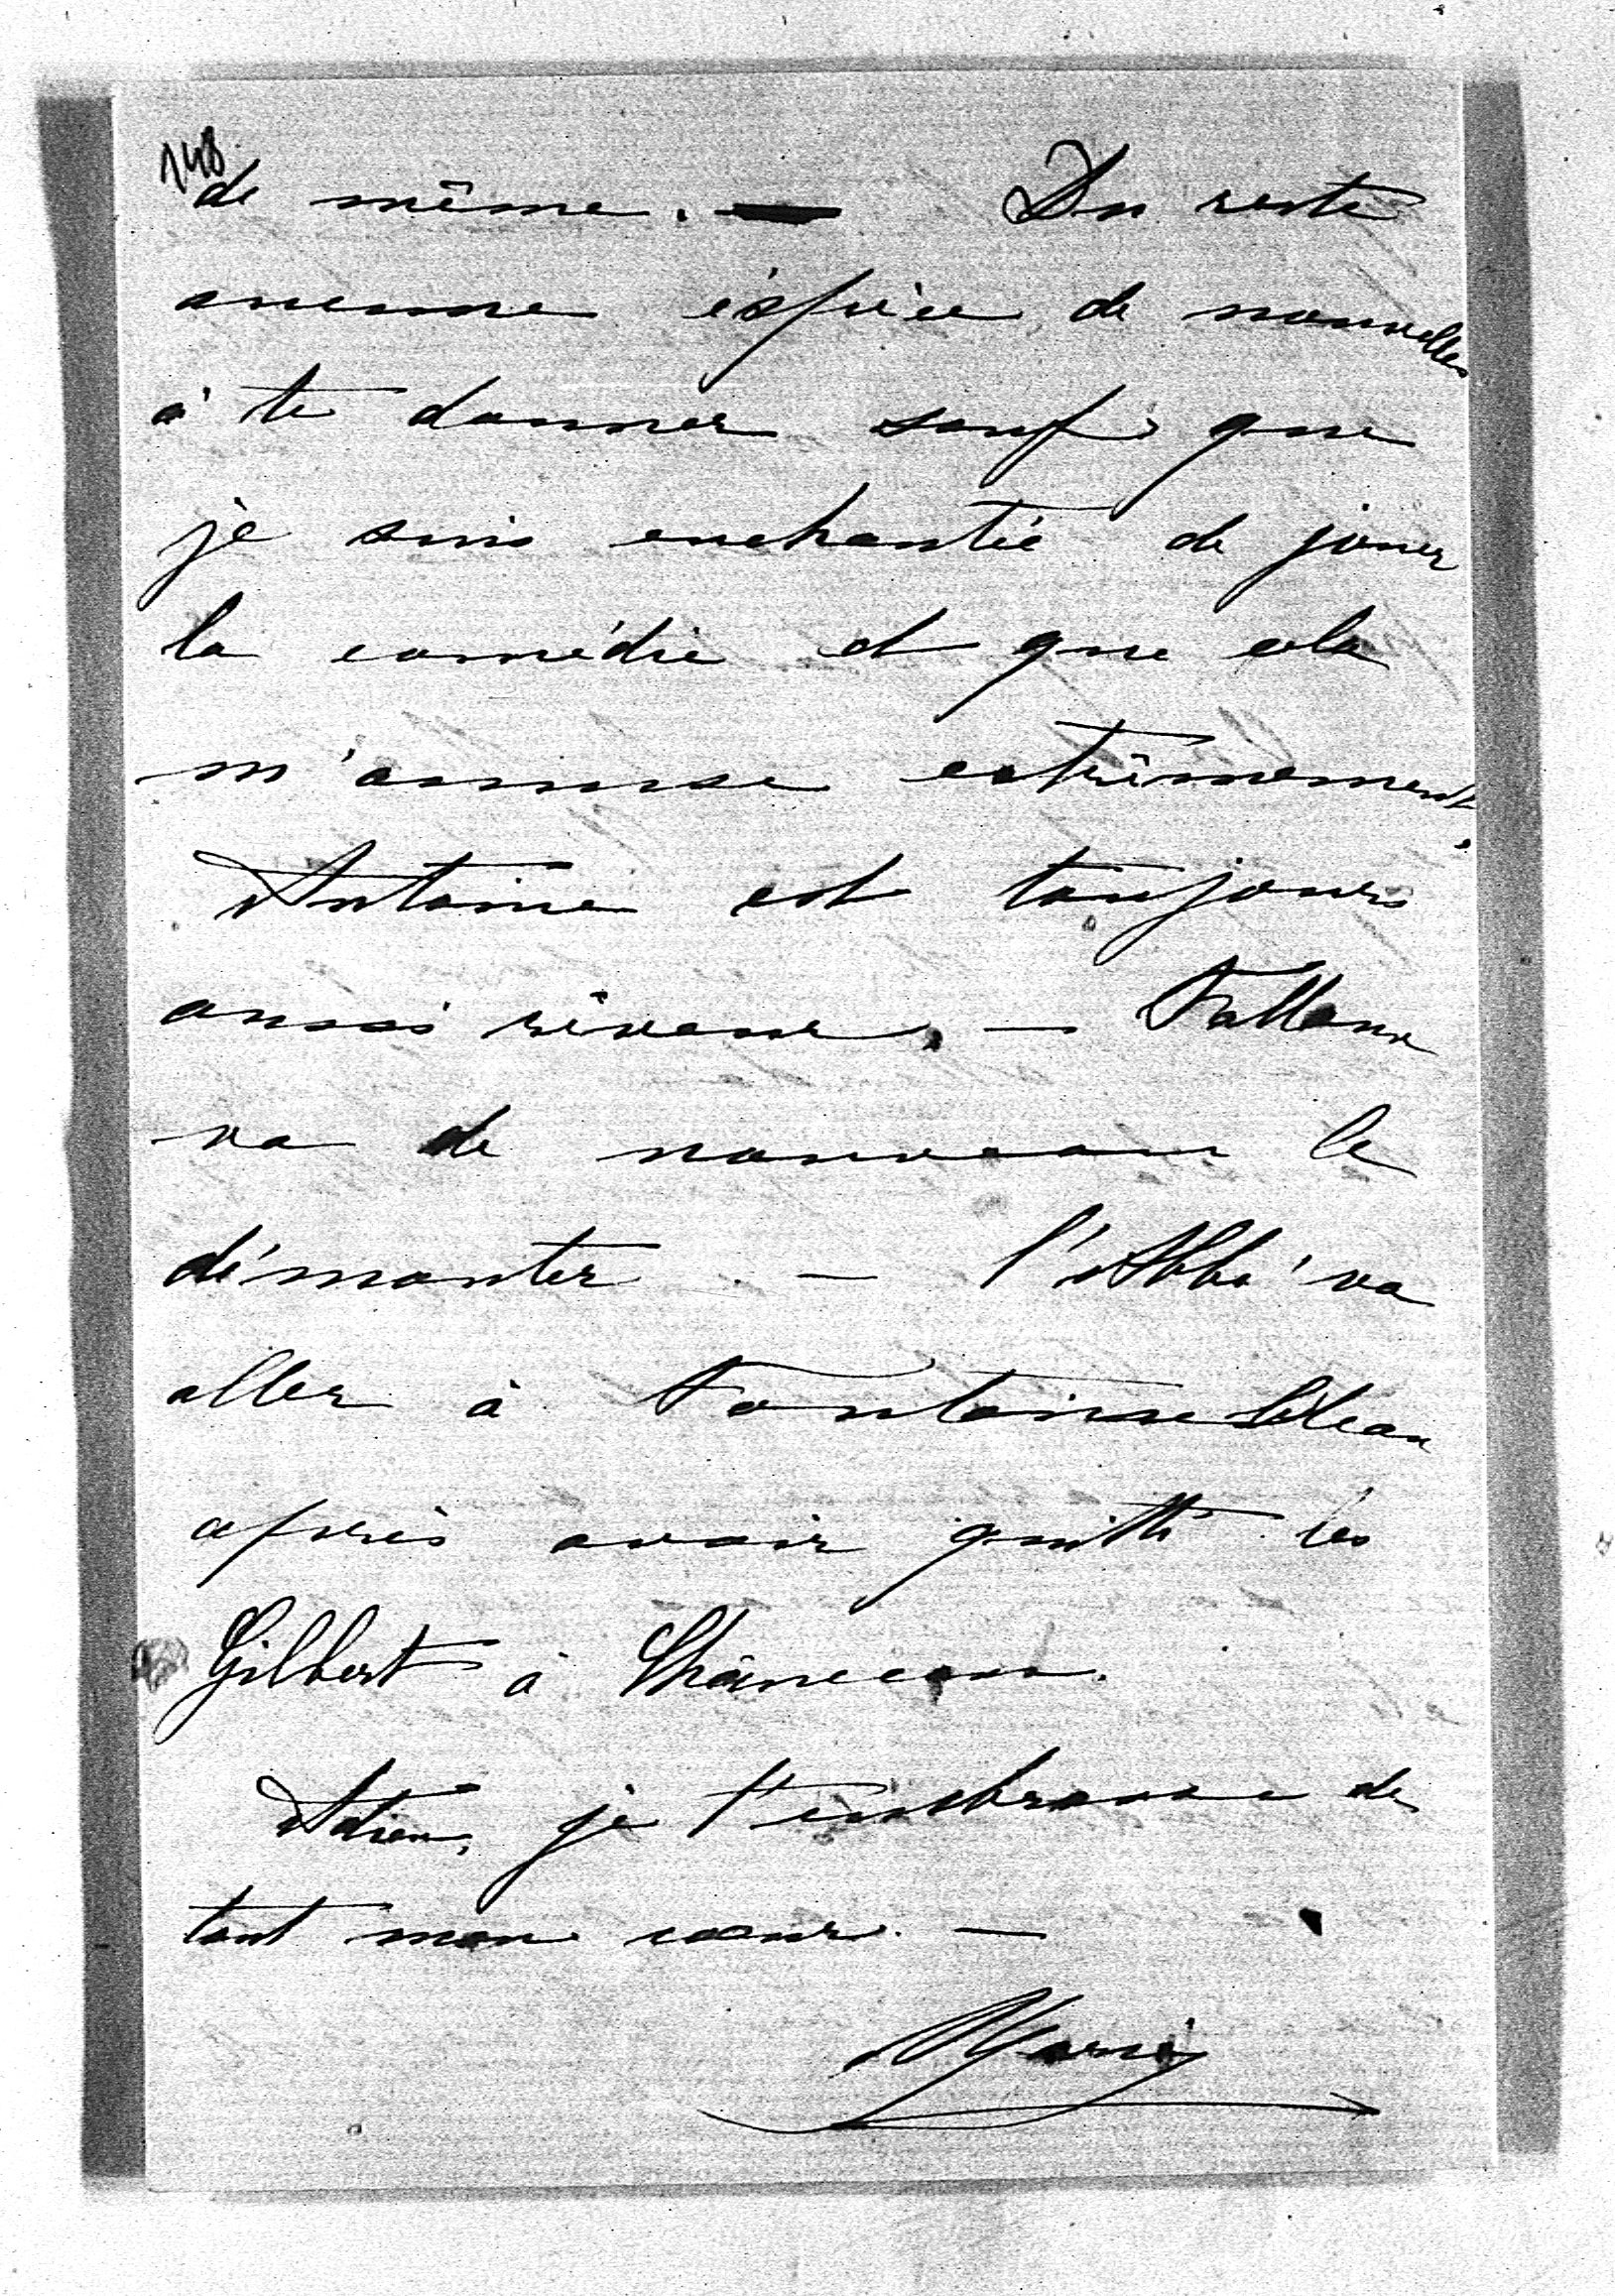 148
de même. — Du reste
aucune éspèce de nouvelles
à te donner sauf que
je suis enchantée de jouer
la comédie et que cela
m'amuse extrêmement.
Antoine est toujours
aussi rêveur. — Falloux
va de nouveau le
démonter — l'Abbé va
aller à Fontainebleau
après avoir quitté les
Gilbert à
Adieu, je t'embrasse de
tout mon cœur. —
Marie